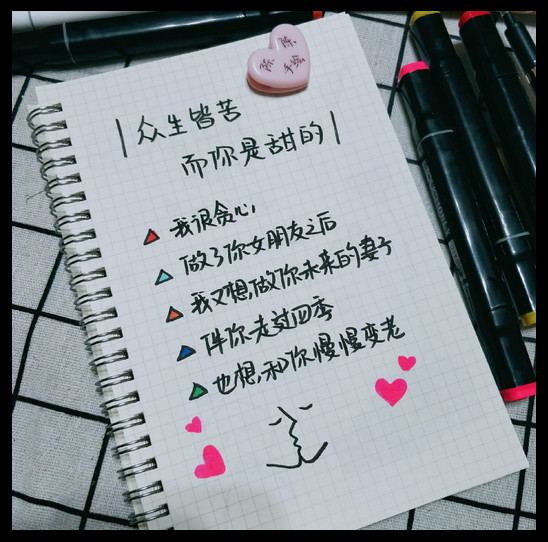 陈陈
手绘
众生皆苦
而你是甜的
我很贪心,
做了你女朋友之后
我又想,做你未来的妻子
伴你走过四季
也想,和你慢慢变老